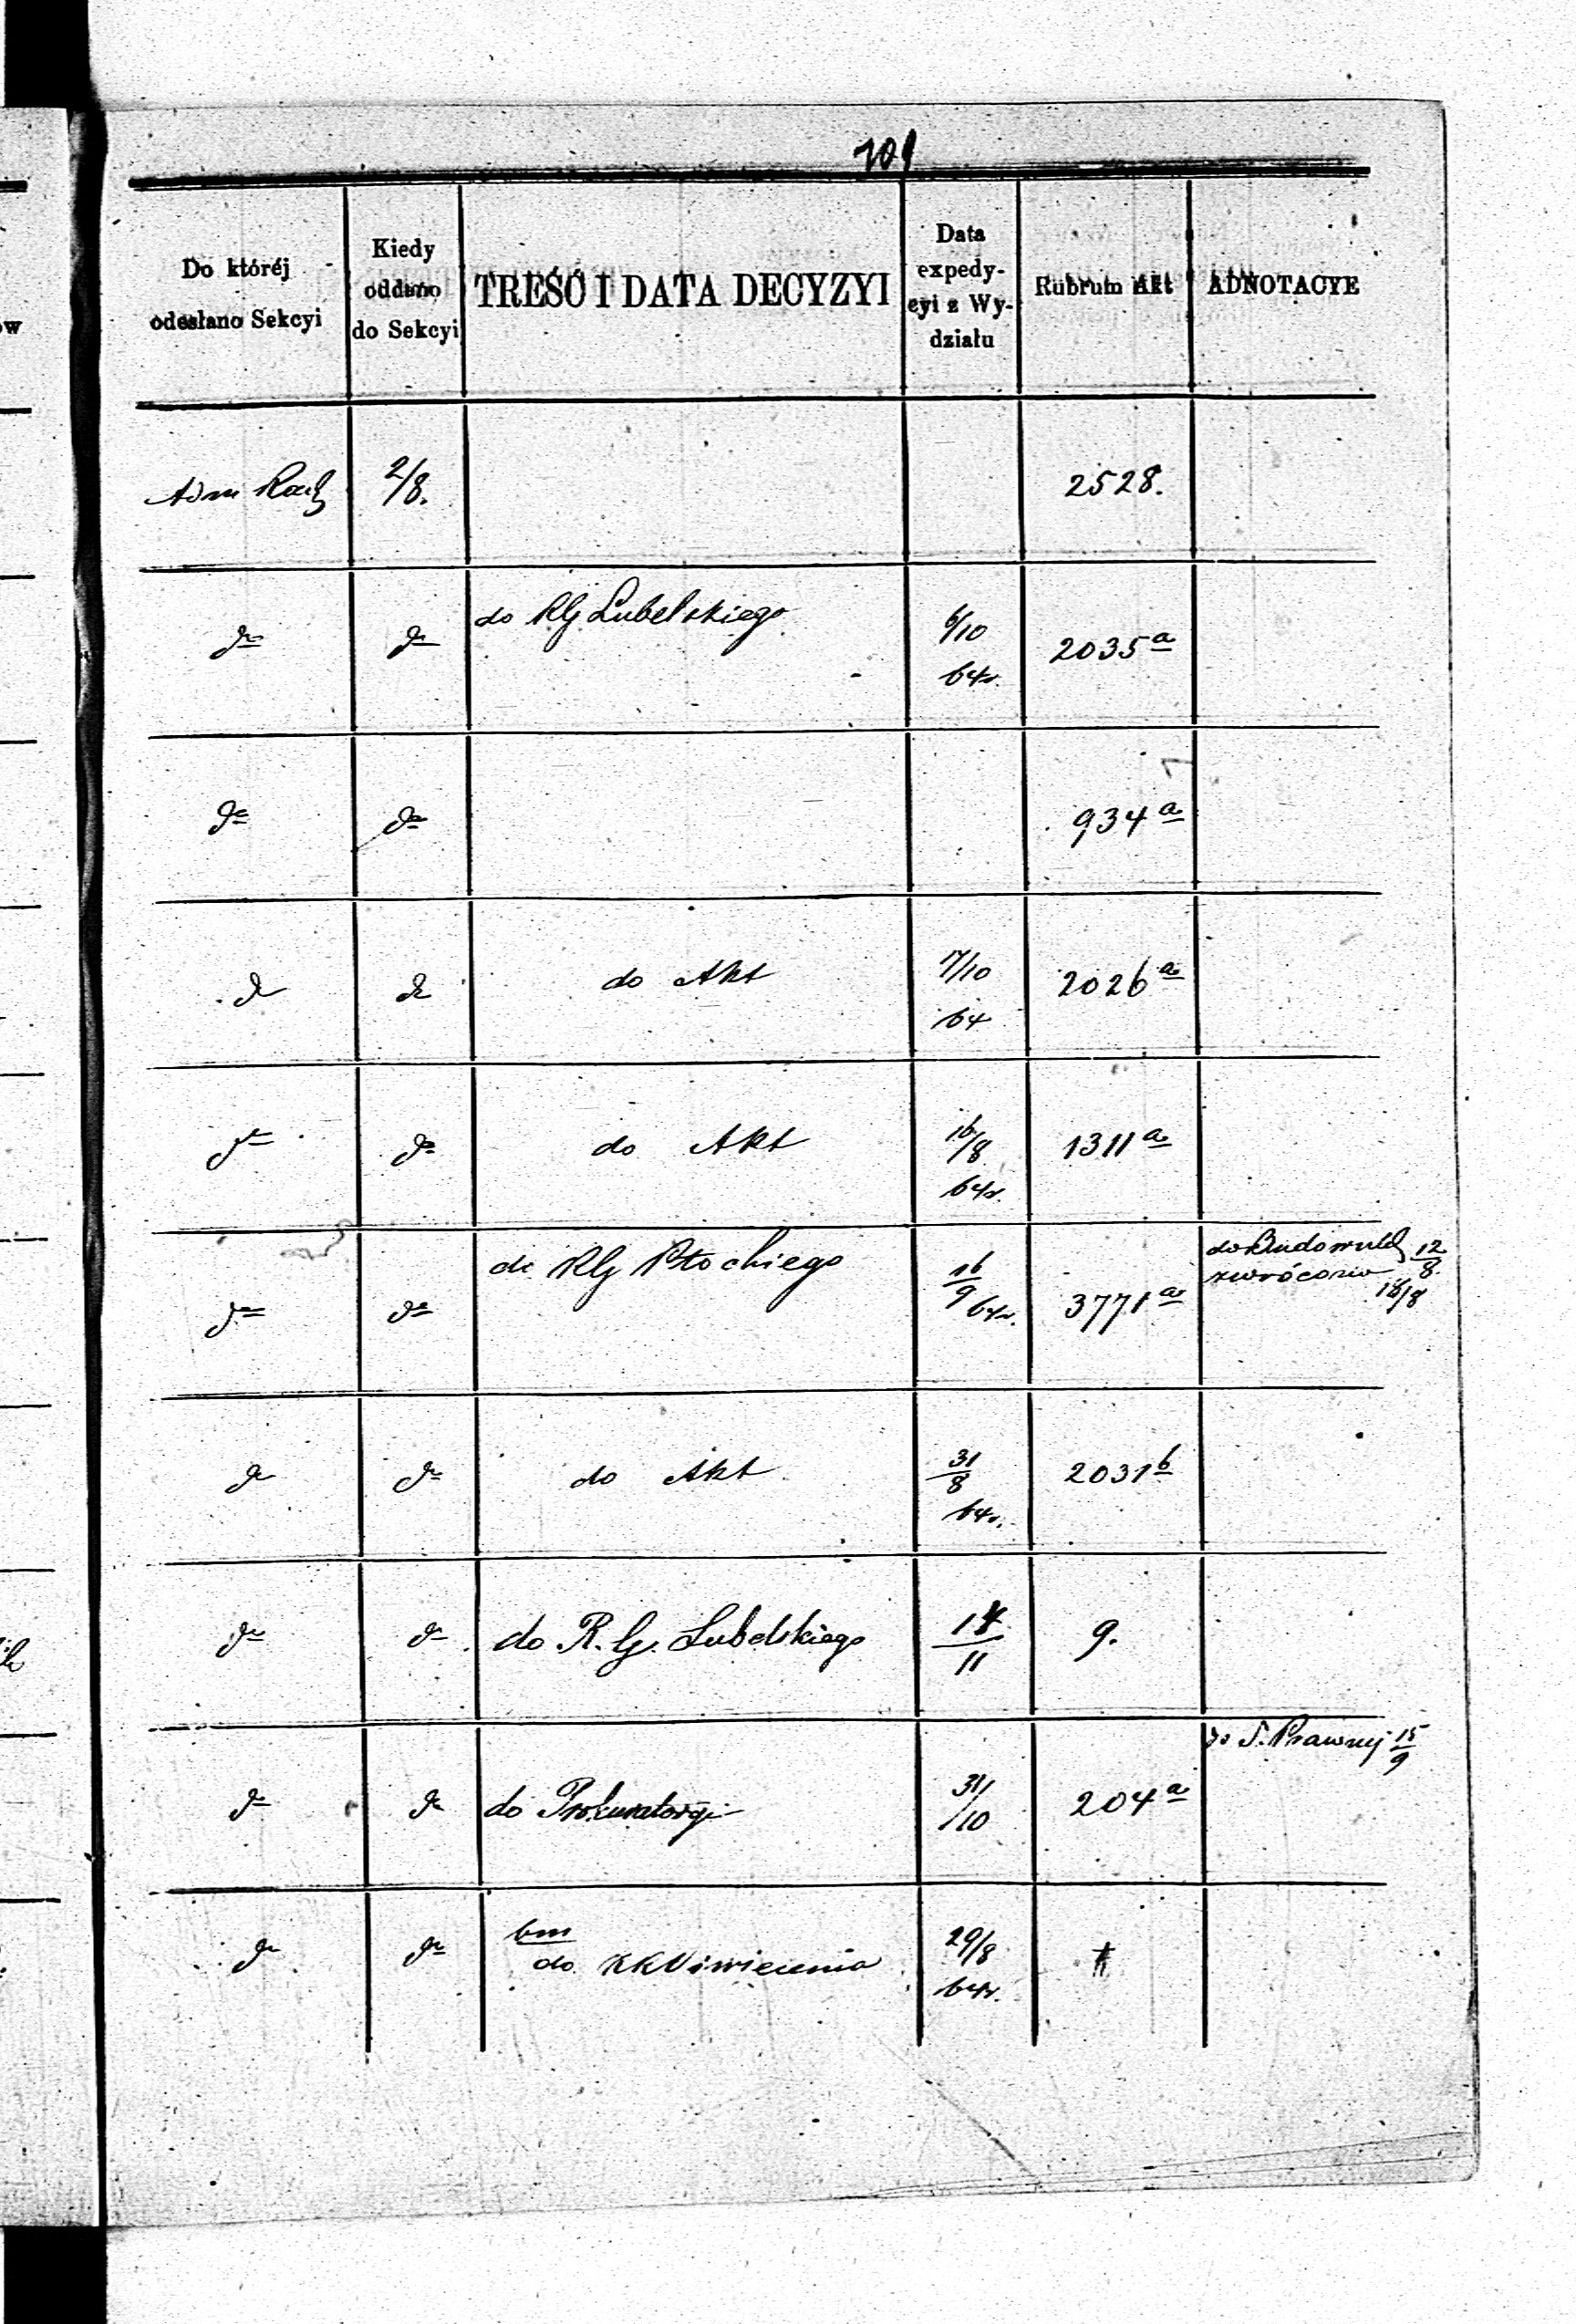 109
Do któréj odesłano Sekcyi
Kiedy oddano do Sekcyi
TREŚĆ I DATA DECYZYI
Data expedycyi z Wydziału
Rubrum Akt
ADNOTACYE
Adm 2/8. 2528.
do do do RG Lubelskiego 6/10 64r. 2035a
do do 934a
do do do Akt 7/10 64 2026a
do do do Akt 16/8 64r. 1311a
do do do RG Płockiego 16/9 64r. 3771a zwrócono 12/8 18/8
do do do Akt 31/8 64r. 2031b
do do do R. G. Lubelskiego 11 9.
do do do Prokuratoryi 31/10 204a do S. Prawnej 15/9
do do bm do 29/8 64r.